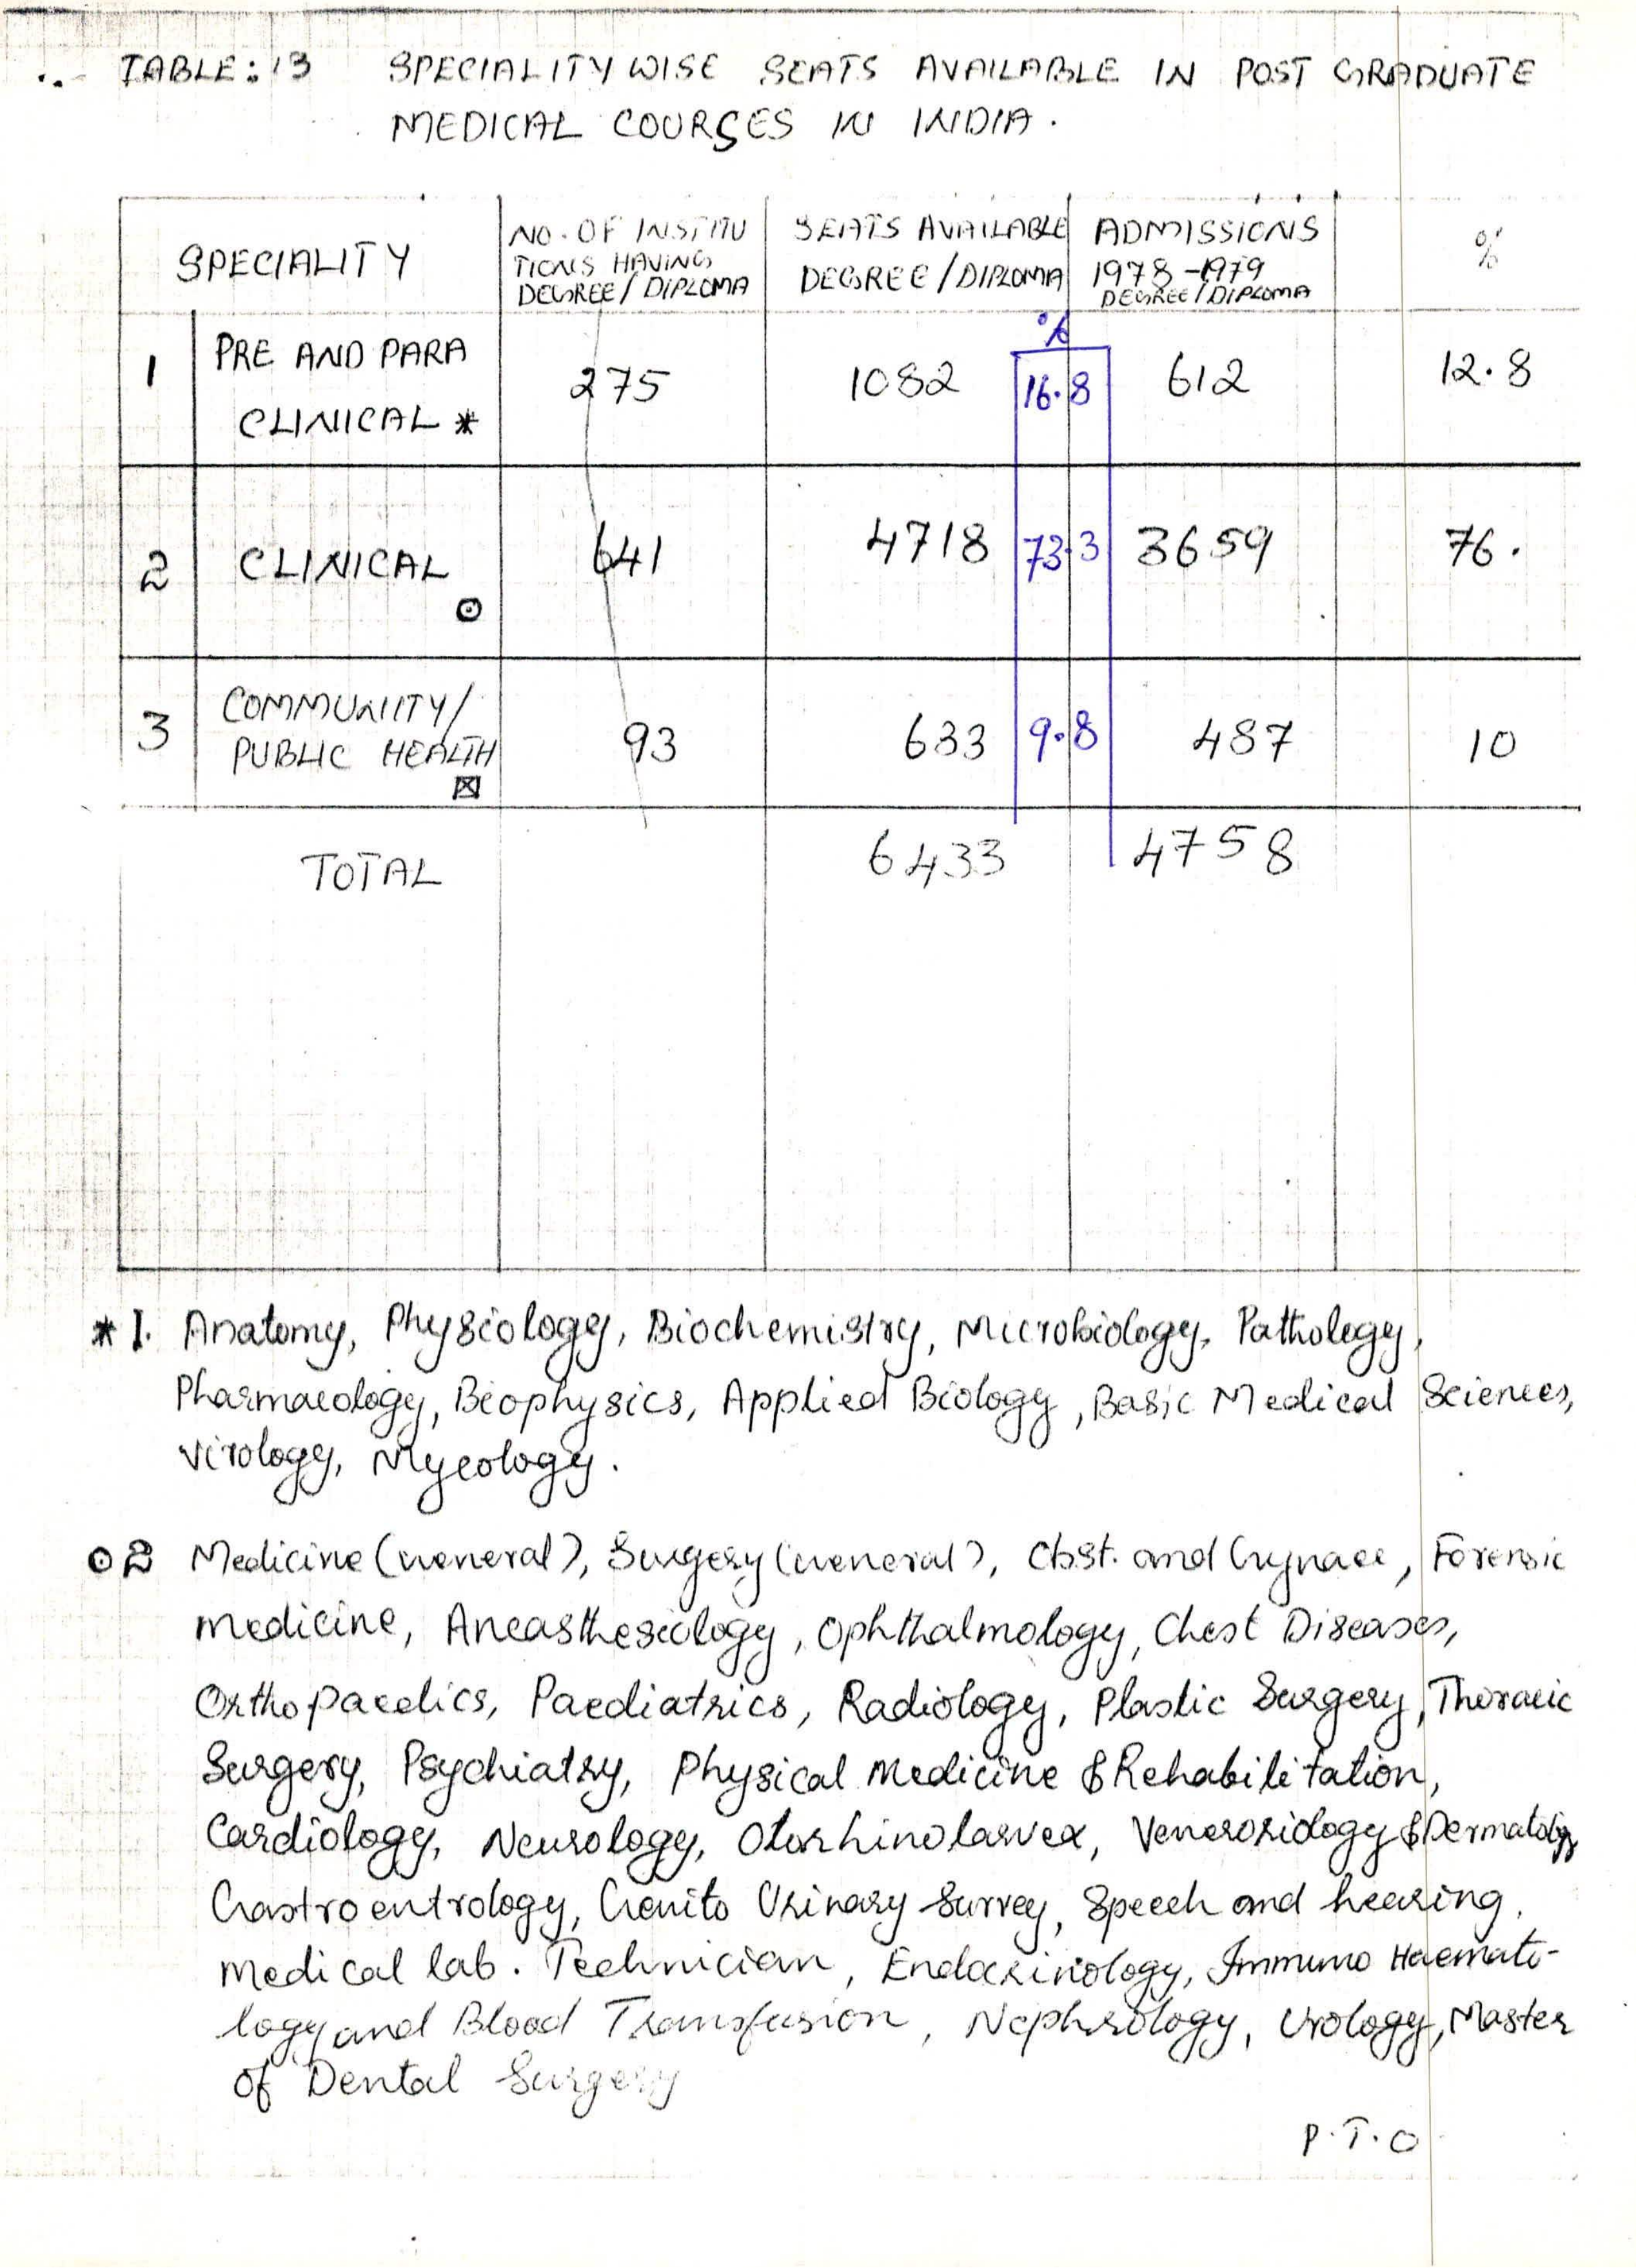 TABLE: 13 SPECIALITY WISE SEATS AVAILABLE IN POST GRADUATE
MEDICAL COURSES IN INDIA.
SPECIALITY | NO. OF INSTITU TIONS HAVING DEGREE / DIPLOMA | SEATS AVAILABLE DEGREE / DIPLOMA | % | ADMISSIONS 1978-1979 DEGREE / DIPLOMA | %
1 PRE AND PARA CLINICAL * | 275 | 1082 | 16.8 | 612 | 12.8
2 CLINICAL ⊙ | 641 | 4718 | 73.3 | 3659 | 76.
3 COMMUNITY / PUBLIC HEALTH ☒ | 93 | 633 | 9.8 | 487 | 10
TOTAL | 6433 | 4758
* 1. Anatomy, Physiology, Biochemistry, Microbiology, Pathology,
Pharmacology, Biophysics, Applied Biology, Basic Medical Sciences,
Virology, Mycology.
⊙ 2 Medicine (General), Surgery (General), Obst. and Gynaec, Forensic
medicine, Aneasthesiology, Ophthalmology, Chest Diseases,
Orthopaedics, Paediatrics, Radiology, Plastic Surgery, Thoracic
Surgery, Psychiatry, Physical Medicine & Rehabilitation,
Cardiology, Neurology, Otorhinolarvex, Veneroriology & Dermatology
Gastroentrology, Genito Urinary Surrey, Speech and hearing,
Medical lab. Technician, Endocrinology, Immuno Haemato-
logy and Blood Transfusion, Nephrology, Urology, Master
of Dental Surgery
P.T.O